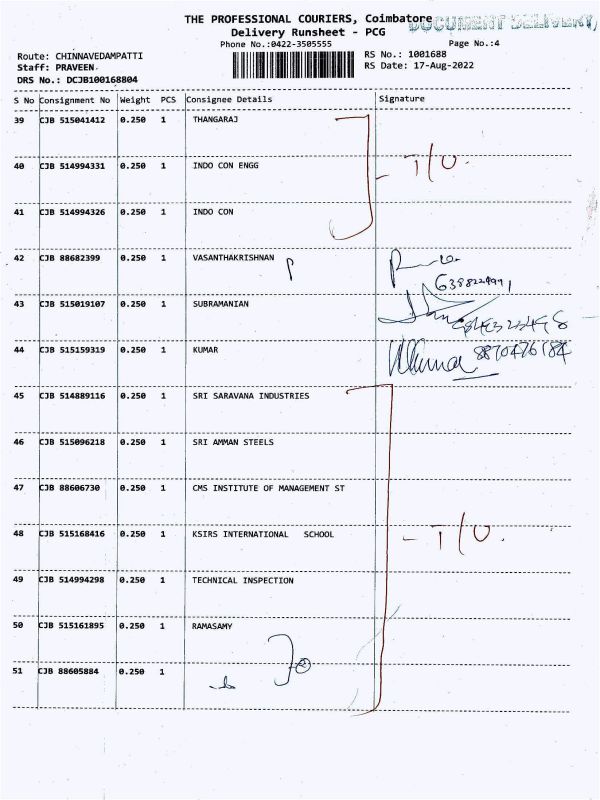 THE PROFESSIONAL COURIERS, Coimbatore
DOCUMENT DELIVERY
Delivery Runsheet - PCG
Phone No.:0422-3505555
Page No.:4
Route: CHINNAVEDAMPATTI
RS No.: 1001688
Staff: PRAVEEN
RS Date: 17-Aug-2022
DRS No.: DCJB100168804
S No Consignment No Weight PCS Consignee Details Signature
39 CJB 515041412 0.250 1 THANGARAJ
40 CJB 514994331 0.250 1 INDO CON ENGG
- T/U.
41 CJB 514994326 0.250 1 INDO CON
42 CJB 88682399 0.250 1 VASANTHAKRISHNAN
43 CJB 515019107 0.250 1 SUBRAMANIAN
44 CJB 515159319 0.250 1 KUMAR 8870476184
45 CJB 514889116 0.250 1 SRI SARAVANA INDUSTRIES
46 CJB 515096218 0.250 1 SRI AMMAN STEELS
47 CJB 88606730 0.250 1 CMS INSTITUTE OF MANAGEMENT ST
48 CJB 515168416 0.250 1 KSIRS INTERNATIONAL SCHOOL - T/U.
49 CJB 514994298 0.250 1 TECHNICAL INSPECTION
50 CJB 515161895 0.250 1 RAMASAMY
51 CJB 88605884 0.250 1